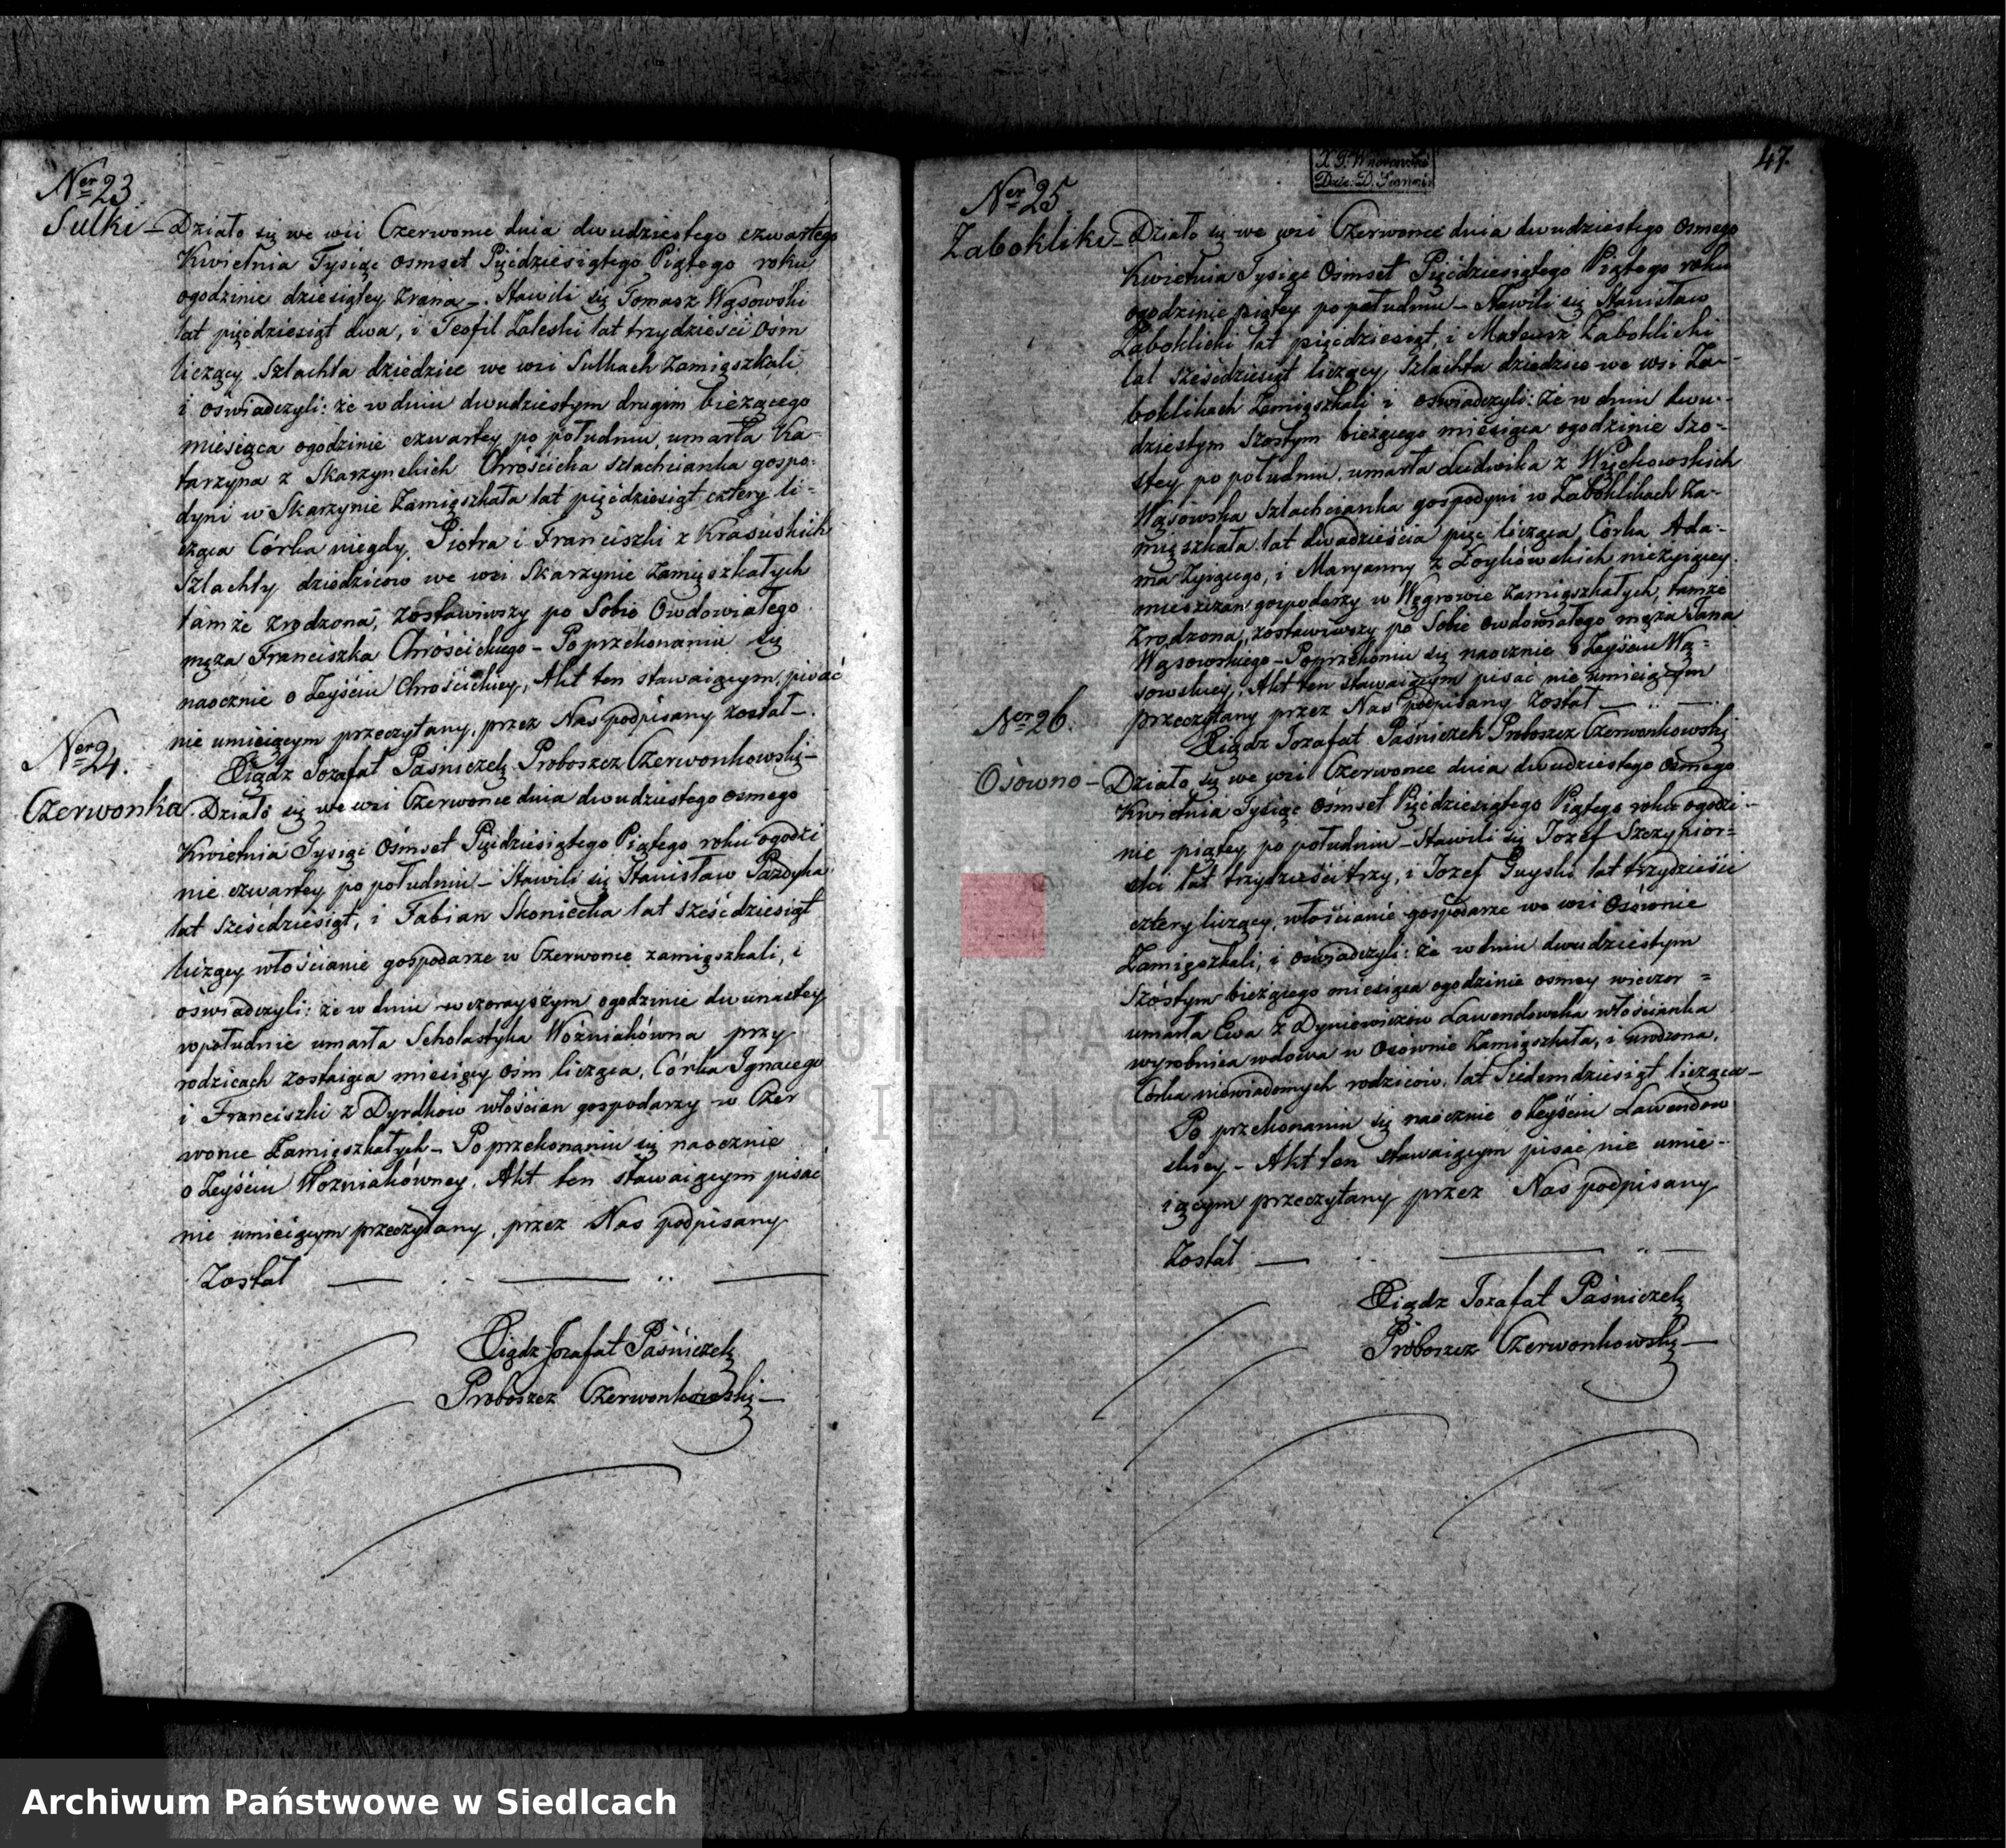 Ner 23
Sulki – Działo się we wsi Czerwonie dnia dwudziestego czwartego
Kwietnia Tysiąc osmset Pięćdziesiątego Piątego roku
ogodzinie dziesiątey zrana –. Stawili się Tomasz Wąsowski
lat pięćdziesiąt dwa, i Teofil Zaleski lat trzydzieści ośm
liczący Szlachta dziedzice we wsi Sulkach Zamięszkali
i oświadczyli: że w dniu dwudziestym drugim bieżącego
miesiąca ogodzinie czwartey po południu, umarła Ka-
tarzyna z Skarzynskich Chrościcka szlachcianka gospo-
dyni w Skarzynie Zamięszkała lat pięćdziesiąt cztery li-
cząca Córka niegdy Piotra i Franciszki z Krasuskich
Szlachty dziedziców we wsi Skarzynie zamięszkałych
tamże zrodzona, zostawiwszy po Sobie Owdowiałego
męża Franciszka Chrościckiego – Po przekonaniu się
naocznie o Zeyściu Chrościckiey, Akt ten stawaiącym, pisać
nie umieiącym przeczytany, przez Nas podpisany został –.
Xiądz Jozafat Paśniczek Proboszcz Czerwonkowski –
Ner 24.
Czerwonka. Działo się we wsi Czerwonce dnia dwudziestego osmego
Kwietnia Tysiąc Ośmset Pięćdziesiątego Piątego roku ogodzi
nie czwartey po południu – Stawili się Stanisław Pazdyka
lat sześćdziesiąt, i Fabian Skoniecka lat sześćdziesiąt
liczący włościanie gospodarze w Czerwonce zamięszkali, i
oświadczyli: że w dniu wczorayszym ogodzinie dwunastey
wpołudnie umarła Scholastyka Woźniakówna przy
rodzicach zostaiąca miesięcy ośm licząca, Córka Ignacego
i Franciszki z Dyrdków włościan gospodarzy w Czer
wonce Zamięszkałych – Po przekonaniu się naocznie
o Zeyściu Woźniakówney, Akt ten stawaiącym pisać
nie umieiącym przeczytany, przez Nas podpisany
Został
Xiądz Jozafat Paśniczek
Proboszcz Czerwonkowski –
47.
Ner 25.
Zabokliki – Działo się we wsi Czerwonce dnia dwudziestego Osmego
Kwietnia Tysiąc Ośmset Pięćdziesiątego Piątego roku
ogodzinie piątey popołudniu – Stawili się Stanisław
Zaboklicki lat pięćdziesiąt, i Mateusz Zaboklicki
lat sześćdziesiąt liczący, Szlachta dziedzice we wsi Za-
boklikach Zamięszkali i oświadczyli: że w dniu dwu-
dziestym szostym bieżącego miesiąca ogodzinie szo-
stey po południu, umarła Ludwika z Wyckowskich
Wąsowska Szlachcianka gospodyni w Zaboklikach Za-
mięszkała lat dwadzieścia pięć licząca, Córka Ada-
ma Żyiącego, i Maryanny z nieżyiącey
mieszczan gospodarzy w Węgrowie Zamięszkałych, tamże
Zrodzona, zostawiwszy po Sobie owdowiałego męża Jana
Wąsowskiego – Poprzekonaniu się naocznie o Zeyściu Wą-
sowskiey, Akt ten stawaiącym pisać nie umieiącym
przeczytany przez Nas podpisany Został
Xiądz Jozafat Paśniczek Proboszcz Czerwonkowski
Ner 26.
Osówno – Działo się we wsi Czerwonce dnia dwudziestego Osmego
Kwietnia Tysiąc Ośmset Pięćdziesiątego Piątego roku ogodzi-
nie piątey po południu – Stawili się Jozef Szczypior-
ski lat trzydzieści trzy, i Jozef Guyski lat trzydzieści
cztery liczący, włościanie gospodarze we wsi Osównie
Zamięszkali, i oświadczyli: że w dniu dwudziestym
Szóstym bieżącego miesiąca ogodzinie osmey wieczor
umarła Ewa z Dyniewiczów Lawendowska włościanka
wyrobnica wdowa w Osownie Zamięszkała, i urodzona,
Córka niewiadomych rodziców, lat Siedemdziesiąt licząca –
Po przekonaniu się naocznie o Zeyściu Lawendow
skiey – Akt ten stawaiącym pisać nie umie-
iącym przeczytany przez Nas podpisany
Został
Xiądz Jozafat Paśniczek
Proboszcz Czerwonkowski –
Archiwum Państwowe w Siedlcach